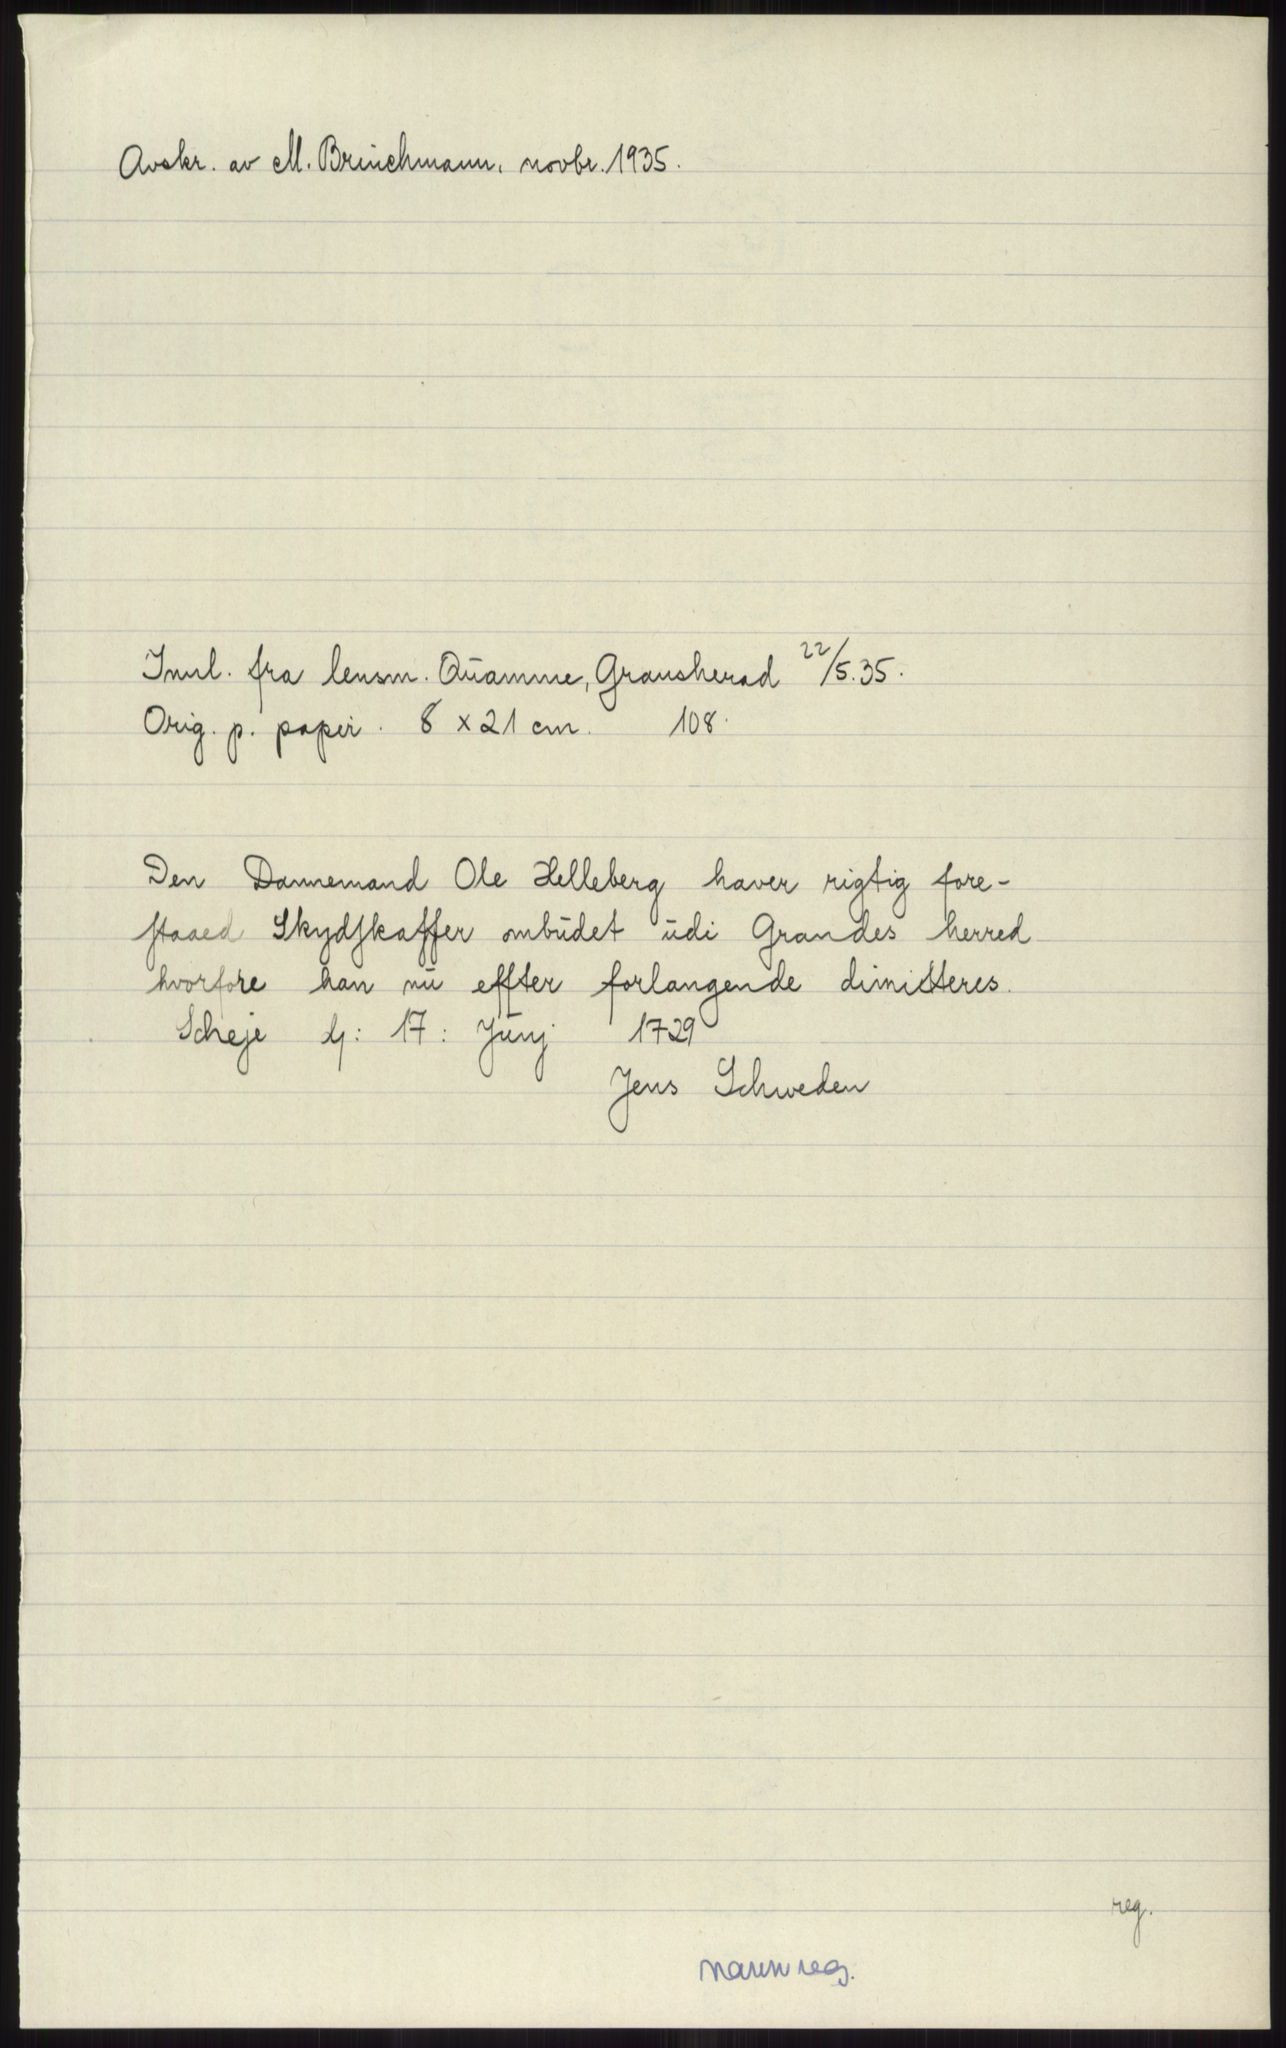 Avskr. av M. Brinchmann, novbr. 1935.
Innl. fra lensm. Quamme, Gransherad 22/5.35.
Orig. p. papir. 8 x 21 cm. 108.
Den Dannemand Ole Helleberg haver rigtig fore-
staaed Skydskaffer ombudet udi Grandes herred
hvorfore han nu effter forlangende dimitteres.
Scheje d: 17: Junj 1729
Jens Schweden
reg.
navnreg.